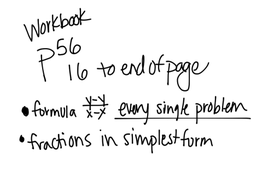 Workbook
p56
16 to end of page
• formula y-y/x-x every single problem
• fractions in simplest form